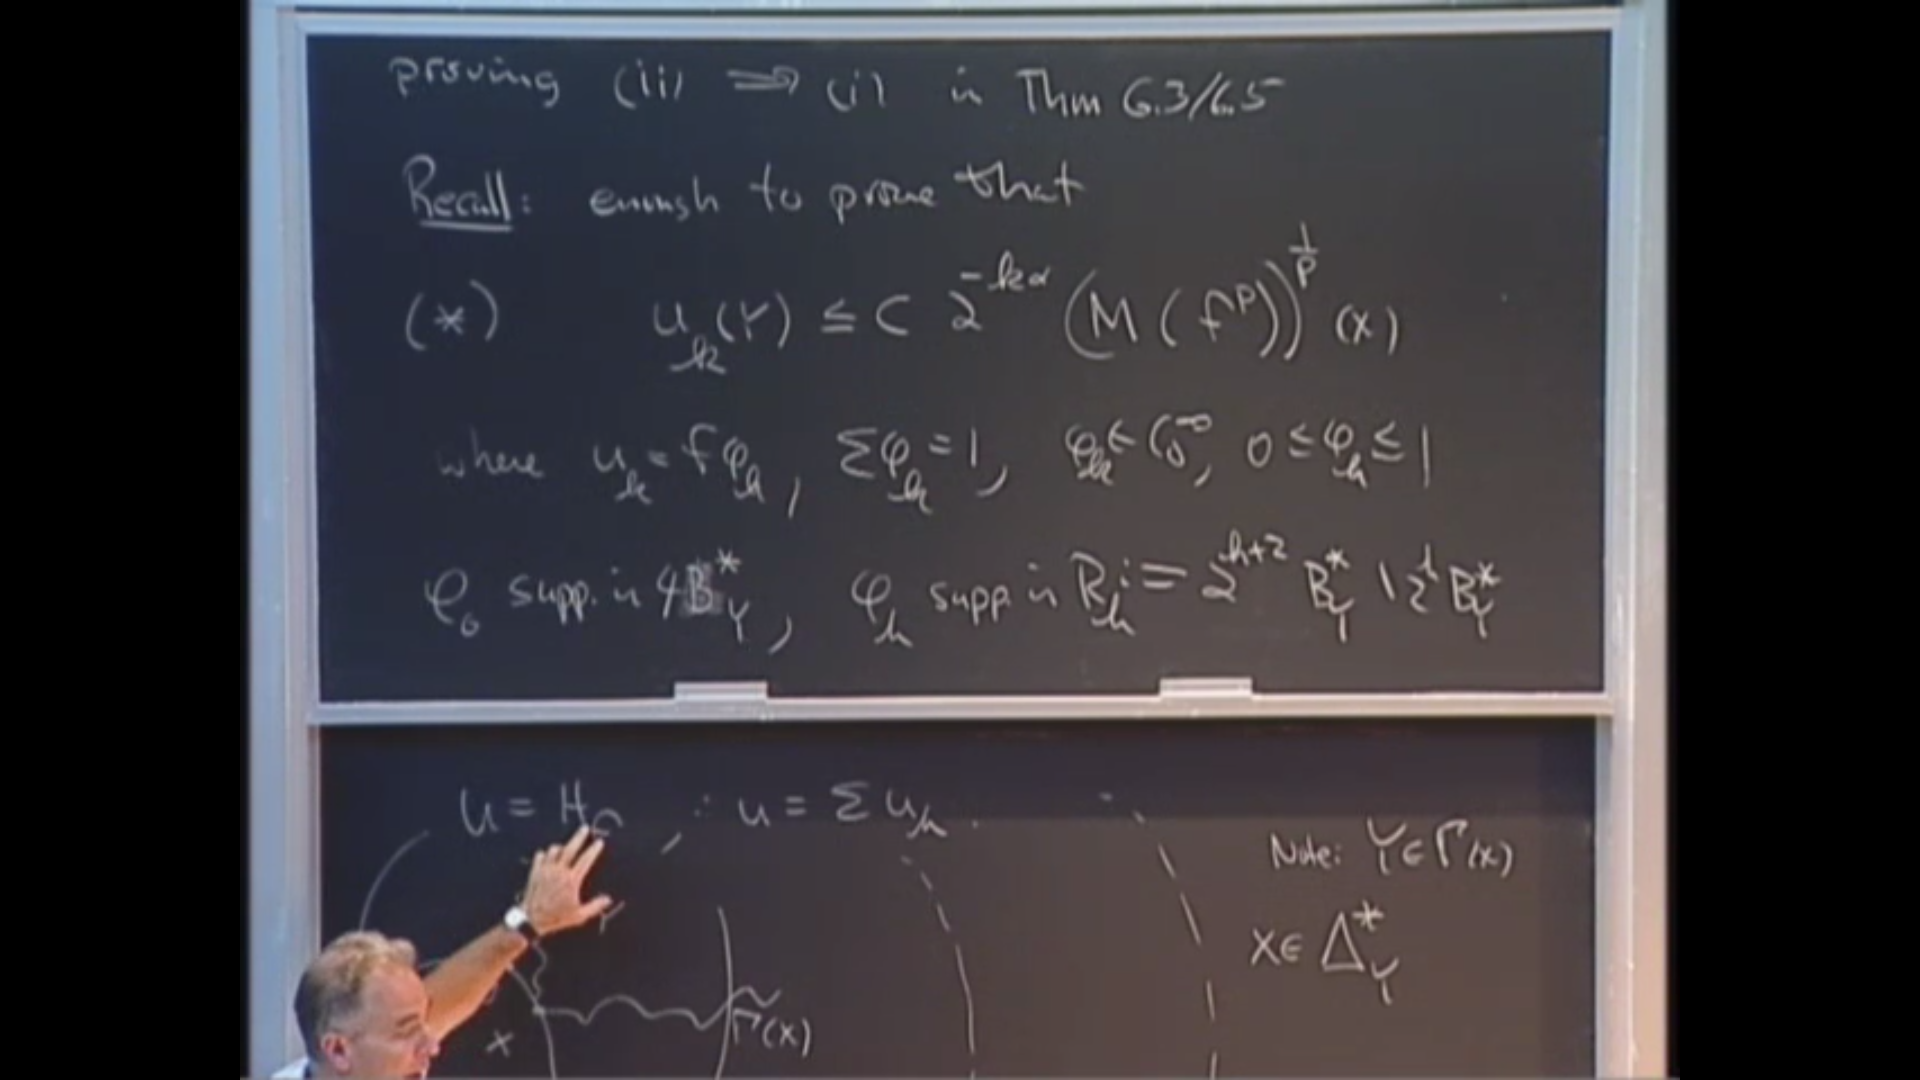 proving (ii) ⟹ (i) in Thm 6.3/6.5
Recall: enough to prove that
(*) u_k(Y) ≤ C 2^{-kα} (M(f^p))^{1/p} (x)
where u_k = fφ_k, Σφ_k = 1, φ_k ∈ C_0^∞, 0 ≤ φ_k ≤ 1
φ_0 supp. in 4B*_Y, φ_k supp in R_k := 2^{k+2} B*_Y \ 2^k B*_Y
u = Σ u_k.
Note: Y ∈ Γ(x)
x ∈ Δ*_Y
Y
x
Γ(x)